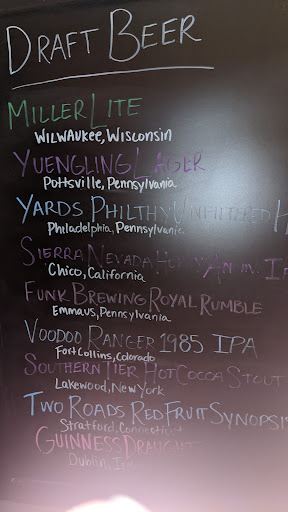 DRAFT BEER
MILLER LITE
WILWAUKEE, WISCONSIN
YUENGLING LAGER
Pottsville, Pennsylvania
YARDS PHILTHY UNFILTERED
Philadelphia, Pennsylvania
SIERRA NEVADA
CHICO, CALIFORNIA
FUNK BREWING ROYAL RUMBLE
EMMAUS, PENNSYLVANIA
VOODOO RANGER 1985 IPA
FORT COLLINS, COLORADO
SOUTHERN TIER HOT COCOA STOUT
LAKEWOOD, NEW YORK
TWO ROADS RED FRUIT SYNOPSIS
STRATFORD, CONNECTICUT
GUINNESS DRAUGHT
DUBLIN,